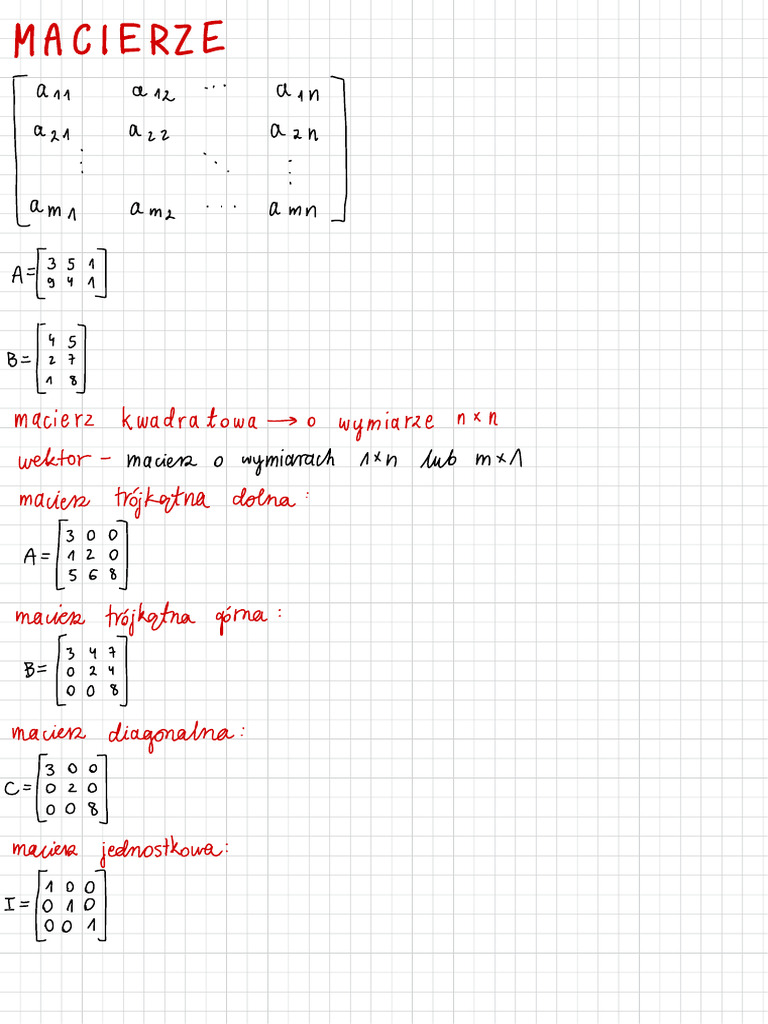 MACIERZE
a11 a12 ... a1n
a21 a22 a2n
⋮ ⋱ ⋮
am1 am2 ... amn
A = [3 5 1
9 4 1]
B = [4 5
2 7
1 8]
macierz kwadratowa → o wymiarze n×n
wektor – macierz o wymiarach 1×n lub m×1
macierz trójkątna dolna:
A = [3 0 0
1 2 0
5 6 8]
macierz trójkątna górna:
B = [3 4 7
0 2 4
0 0 8]
macierz diagonalna:
C = [3 0 0
0 2 0
0 0 8]
macierz jednostkowa:
I = [1 0 0
0 1 0
0 0 1]